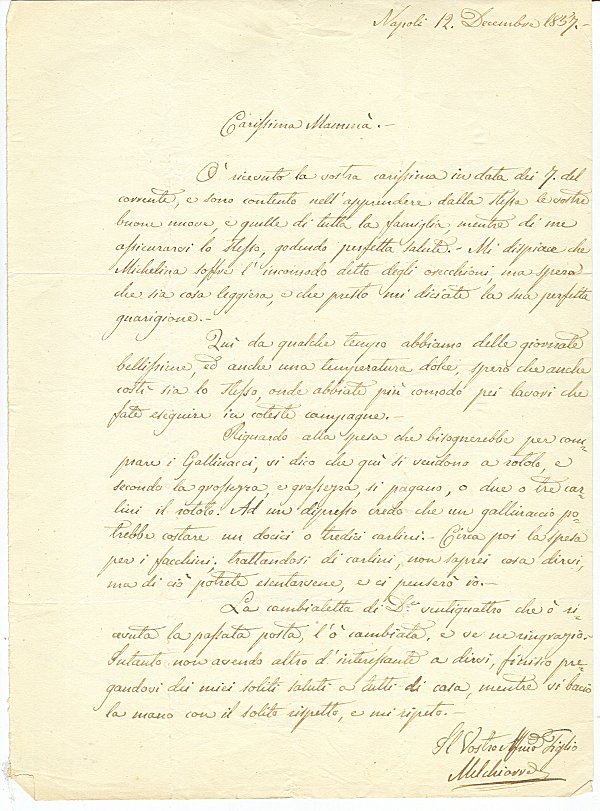 Napoli 12. Decembre 1837.-
Carissima Mammà.-
Ò ricevuto la vostra carissima in data dei 7. del
corrente, e sono contento nell'apprendere dalla stessa le vostre
buone nuove, e quelle di tutta la famiglia, mentre di me
assicurarvi lo stesso, godendo perfetta salute.- Mi dispiace che
Michelina soffre l'incomodo detto degli orecchioni ma spero
che sia cosa leggiera, e che presto mi diciate la sua perfetta
guarigione.-
Quì da qualche tempo abbiamo delle giornate
bellissime, ed anche una temperatura dolce, spero che anche
costì sia lo stesso, onde abbiate più comodo pei lavori che
fate eseguire in coteste campagne.-
Riguardo alla spesa che bisognerebbe per com=
prare i Gallinacci, vi dico che quì si vendono a rotolo, e
secondo la grossezza, e grassezza, si pagano, o due o tre car=
lini il rotolo. Ad un dipresso credo che un gallinaccio po=
trebbe costare un dodici o tredici carlini.- Circa poi la spesa
per i facchini, trattandosi di carlini, non saprei cosa dirvi,
ma di ciò potrete esentarvene, e ci penserò io.-
La cambialetta di D.ti ventiquattro che ò ri=
cevuta la passata posta, l'ò cambiata, e ve ne ringrazio.
Intanto non avendo altro d'interessante a dirvi, finisco pre=
gandovi dei miei soliti saluti a tutti di casa, mentre vi bacio
la mano con il solito rispetto, e mi ripeto.
Il Vostro Affmo Figlio
Melchiorre